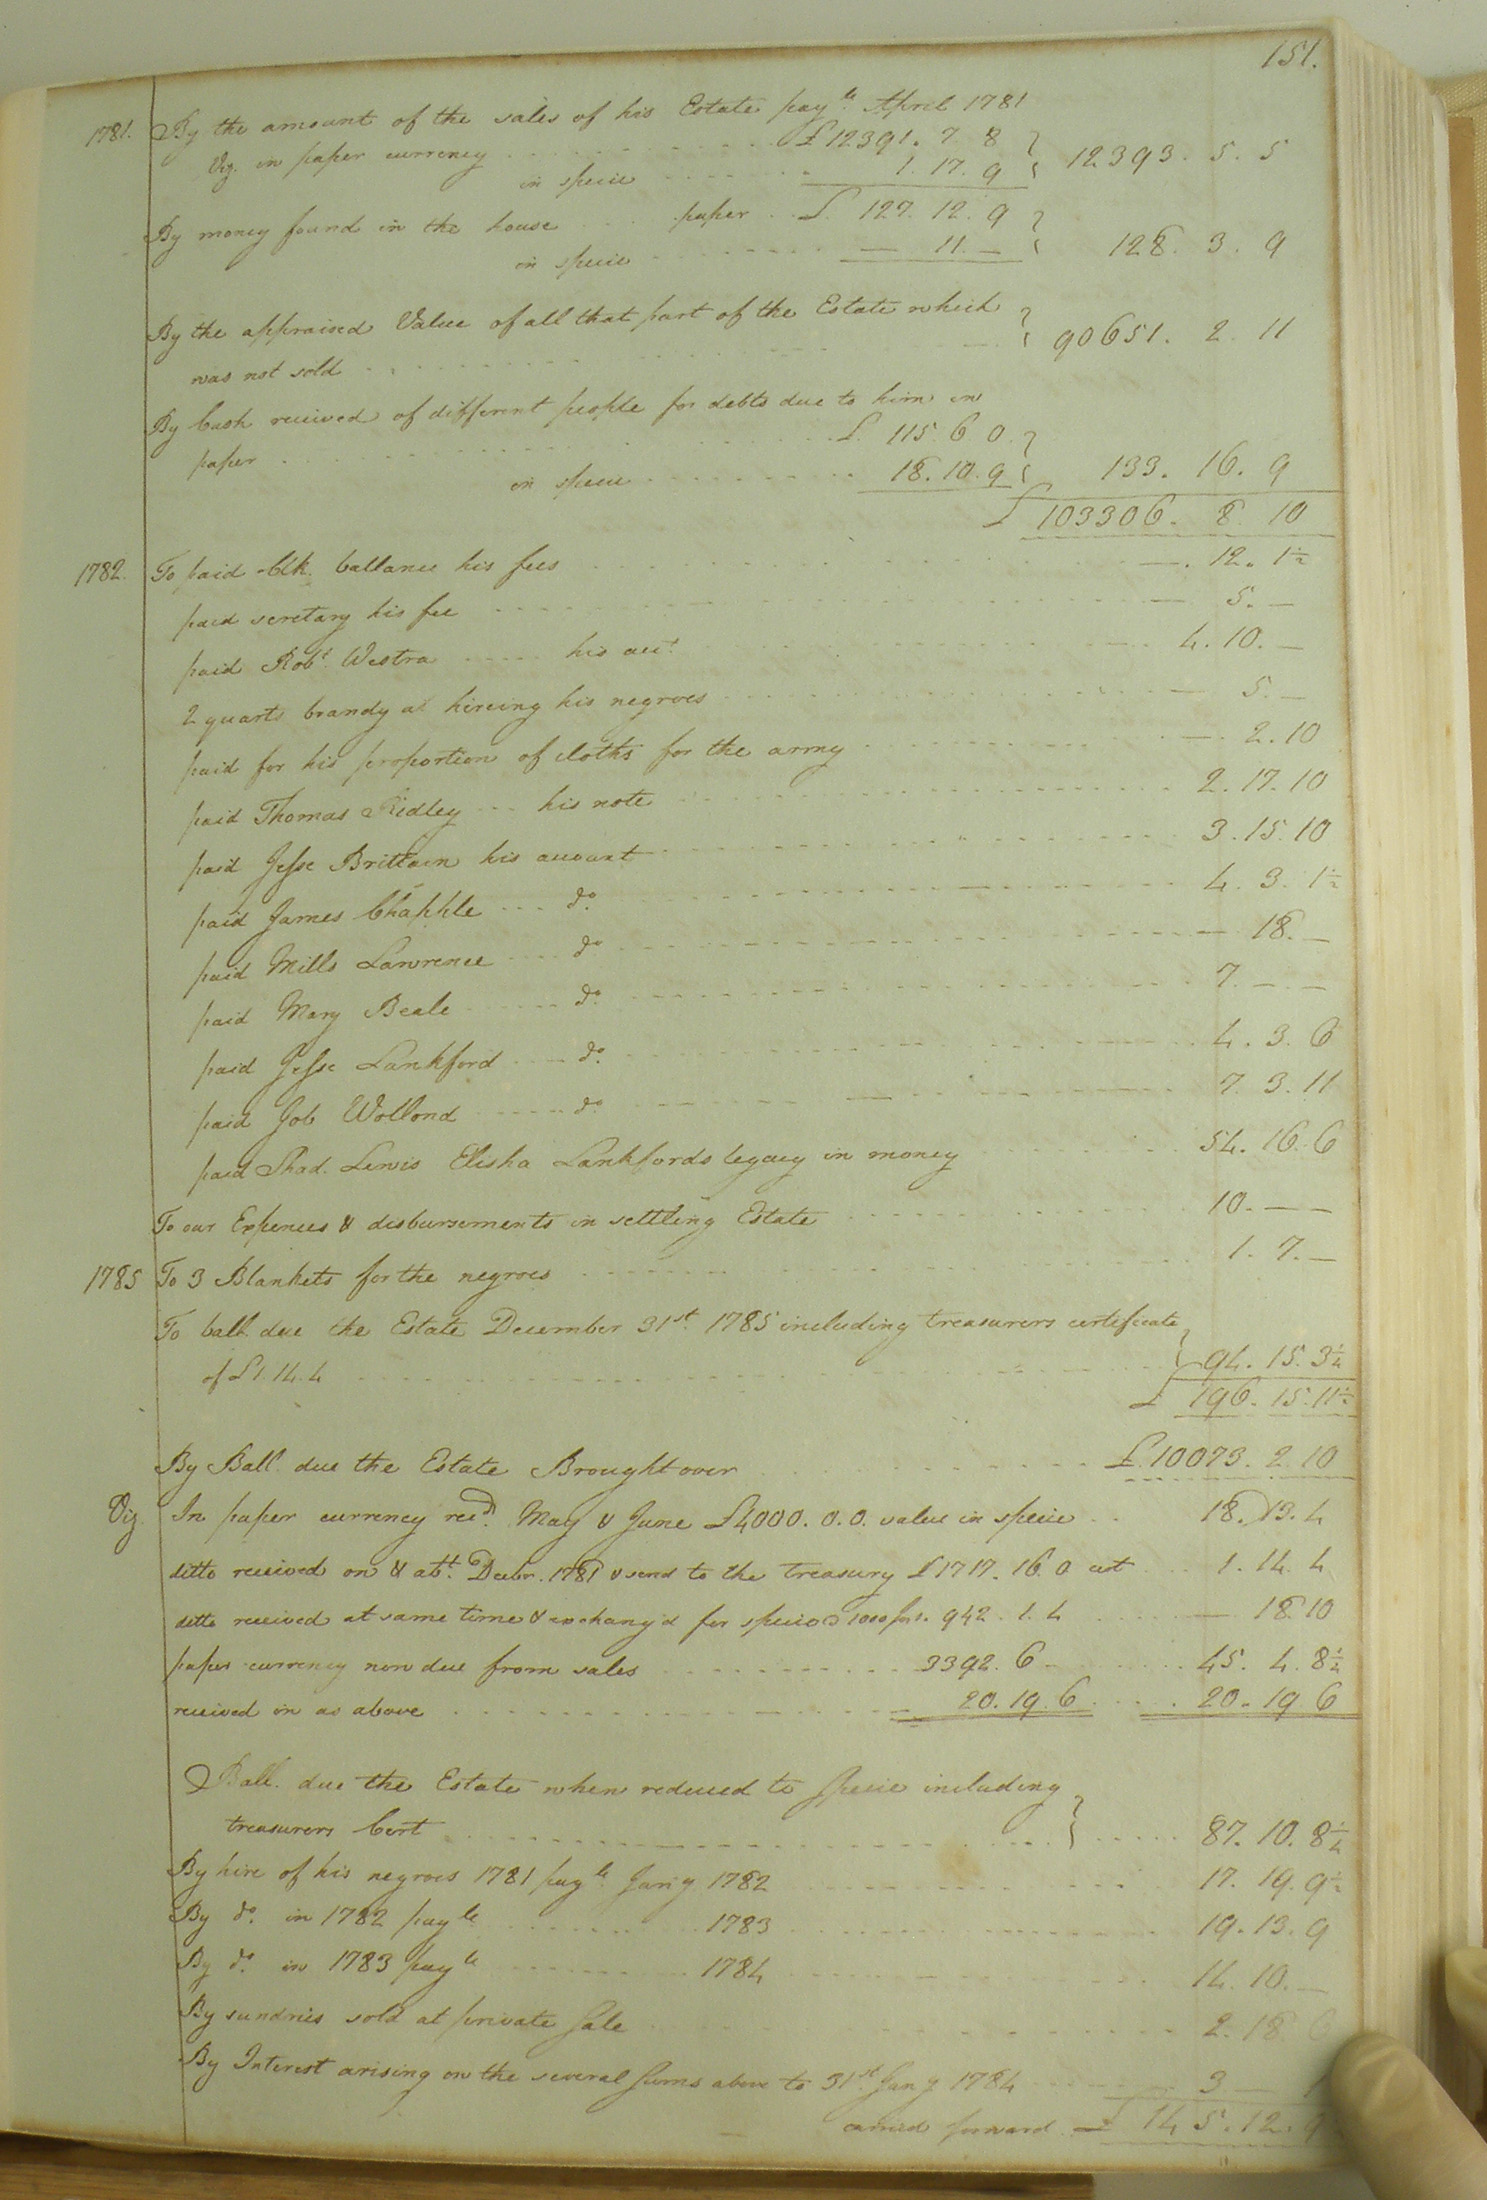 151.
1781. By the amount of the sales of his Estate pay.le April 1781
Viz. in paper currency £12391. 7 8 } 12393. 5. 5
in specie 1. 17. 9
By money found in the house paper £ 127. 12. 9 } 128. 3. 9
in specie — 11. —
By the appraised Value of all that part of the Estate which } 90651. 2. 11
was not sold
By Cash received of different people for debts due to him in
paper £. 115. 6 0. }
in specie 18. 10. 9 133. 16. 9
£ 103306. 8 10
1782. To paid Clk. ballance his fees —. 12. 1½
paid secretary his fee — 5. —
paid Robt. Westra his acct. 4. 10. —
2 quarts brandy at hireing his negroes — 5. —
paid for his proportion of cloths for the army — 2. 10
paid Thomas Ridley his note 2. 17. 10
paid Jesse Brittain his account 3. 15. 10
paid James Chapple do. 4. 3. 1½
paid Mills Lawrence do — 18. —
paid Mary Beale do. 7. — —
paid Jesse Lankford do. 4. 3. 6
paid Job Wollond do. 7. 3. 11
paid Shad. Lewis Elisha Lankfords legacy in money 54. 16. 6
To our Expences & disbursements in settling Estate 10. — —
1785 To 3 Blankets for the negroes 1. 7. —
To ball. due the Estate December 31st. 1785 including treasurers certificate
of £1. 14. 4 } 94. 15. 3¼
£ 196. 15. 11½
By Ball. due the Estate Brought over £10073. 2. 10
Viz. In paper currency recd. May & June £4000. 0. 0. value in specie 18. 13. 4
ditto received on & abt. Decbr. 1781 & send to the treasury £1717. 16. 0 cert 1. 14. 4
ditto received at same time & exchang'd for specie 1000 for 1. 942. 1. 4 — 18. 10
paper currency now due from sales 3392. 6 — 45. 4. 8¼
received in as above 20. 19. 6 20. 19 6
Ball. due the Estate when reduced to specie including }
treasurers Cert 87. 10. 8¼
By hire of his negroes 1781 pay.le Jany 1782 17. 19. 9½
By do. in 1782 payle 1783 19. 13. 9
By do. in 1783 payle 1784 14. 10. —
By sundries sold at private sale 2. 18
By Interest arising on the several sums above to 31st Jany 1784 3 —
carried forward £ 145. 12. 9